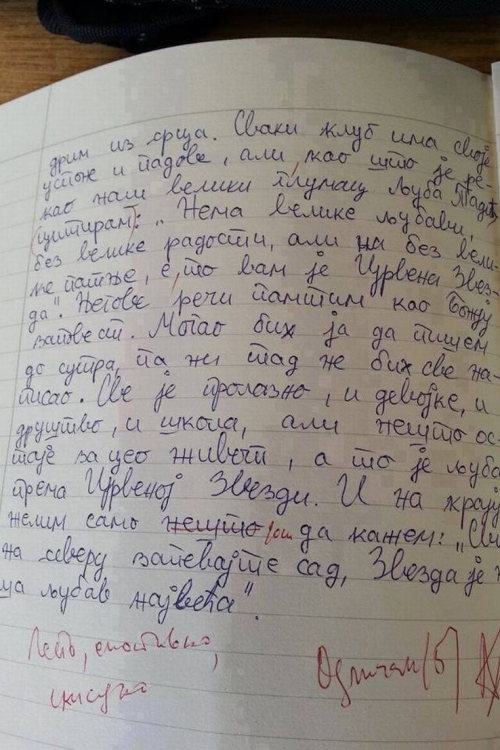 дрим из срца. Сваки клуб има своје
успоне и падове, али, као што је ре-
као наш велики глумац Љуба Тадић,
(цитирам): „Нема велике љубави,
без велике радости, али ни без вели-
ке патње, е, то вам је Црвена Звез-
да". Његове речи памтим као Божју
заповест. Могао бих ја да пишем
до сутра, па ни тад не бих све на-
писао. Све је пролазно, и девојке, и
друштво, и школа, али нешто ос-
таје за цео живот, а то је љубав
према Црвеној Звезди. И на крају
желим само нешто још да кажем: „Сви
на северу запевајте сад, Звезда је н
ша љубав највећа".
Лепо, емотивно,
искусно
Одличан (5)